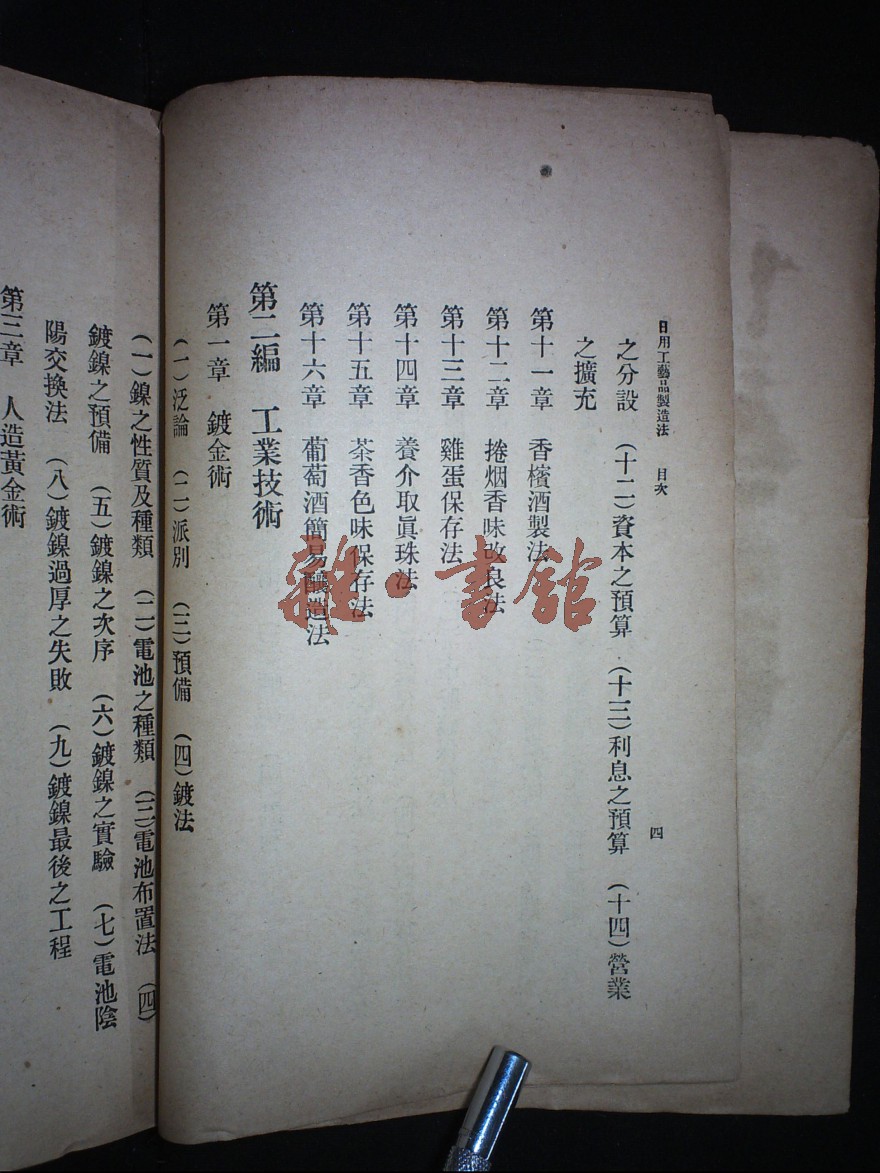 日用工藝品製造法　目次　四
之分設　(十二)資本之預算　(十三)利息之預算　(十四)營業
之擴充
第十一章　香檳酒製法
第十二章　捲烟香味改良法
第十三章　雞蛋保存法
第十四章　養介取眞珠法
第十五章　茶香色味保存法
第十六章　葡萄酒簡易釀造法
第二編　工業技術
第一章　鍍金術
(一)泛論　(二)派別　(三)預備　(四)鍍法
(一)鎳之性質及種類　(二)電池之種類　(三)電池布置法　(四)
鍍鎳之預備　(五)鍍鎳之次序　(六)鍍鎳之實驗　(七)電池陰
陽交換法　(八)鍍鎳過厚之失敗　(九)鍍鎳最後之工程
第三章　人造黃金術
雜·書館